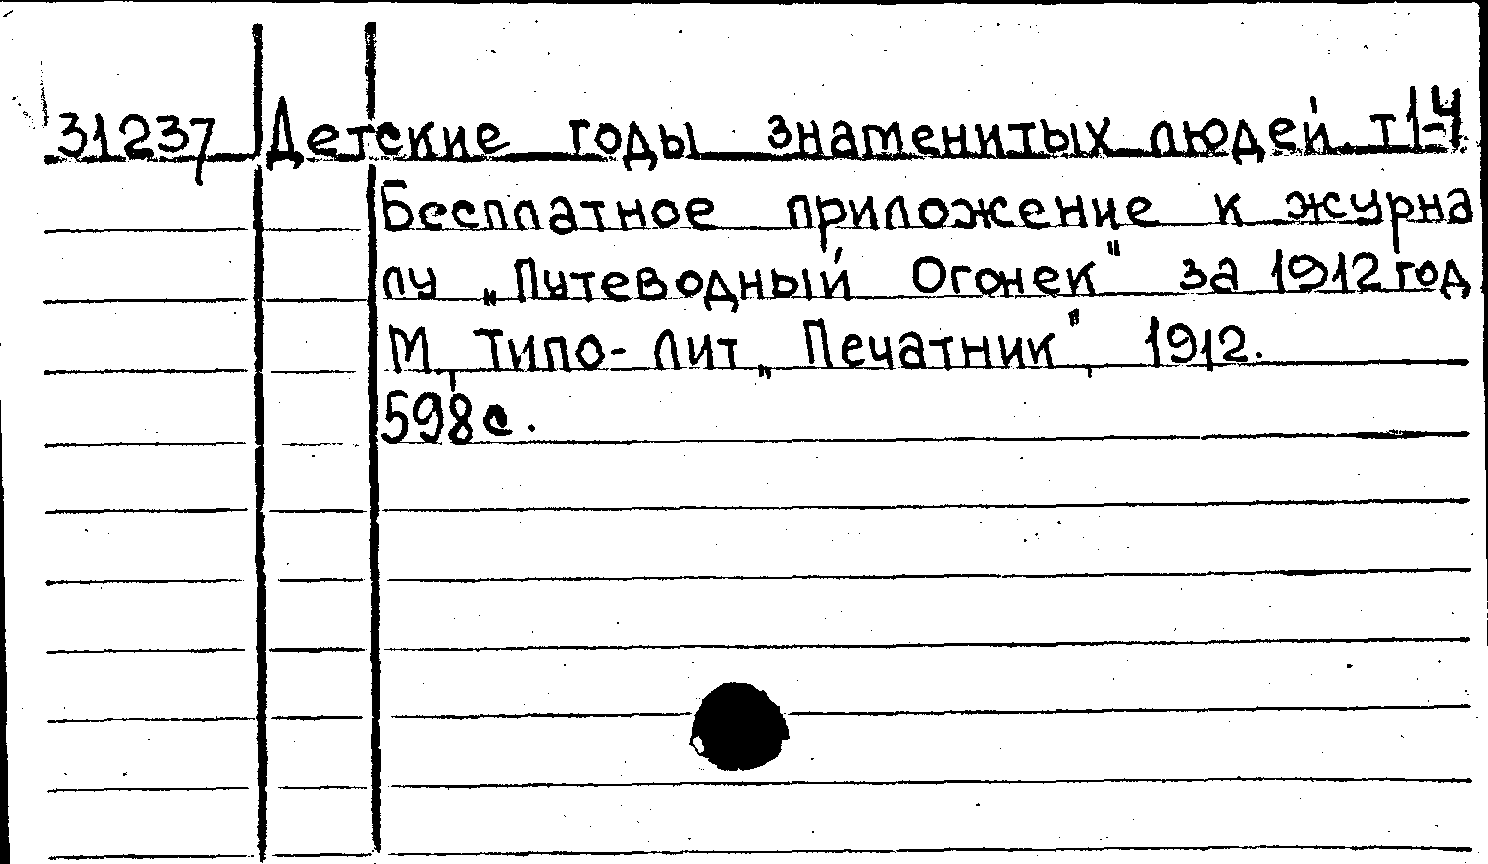 31237 Детские годы знаменитых людей. т 1-4
Бесплатное приложение к журна
лу „Путеводный Огонек" за 1912 год
М., Типо-лит „Печатник", 1912.
598 с.